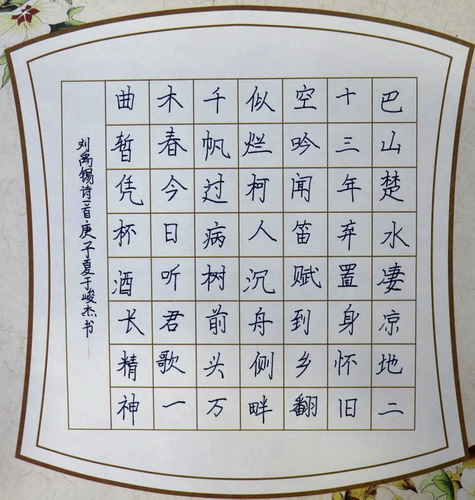 巴山楚水凄凉地二
十三年弃置身怀旧
空吟闻笛赋到乡翻
似烂柯人沉舟侧畔
千帆过病树前头万
木春今日听君歌一
曲暂凭杯酒长精神
刘禹锡诗一首庚子夏于峻杰书